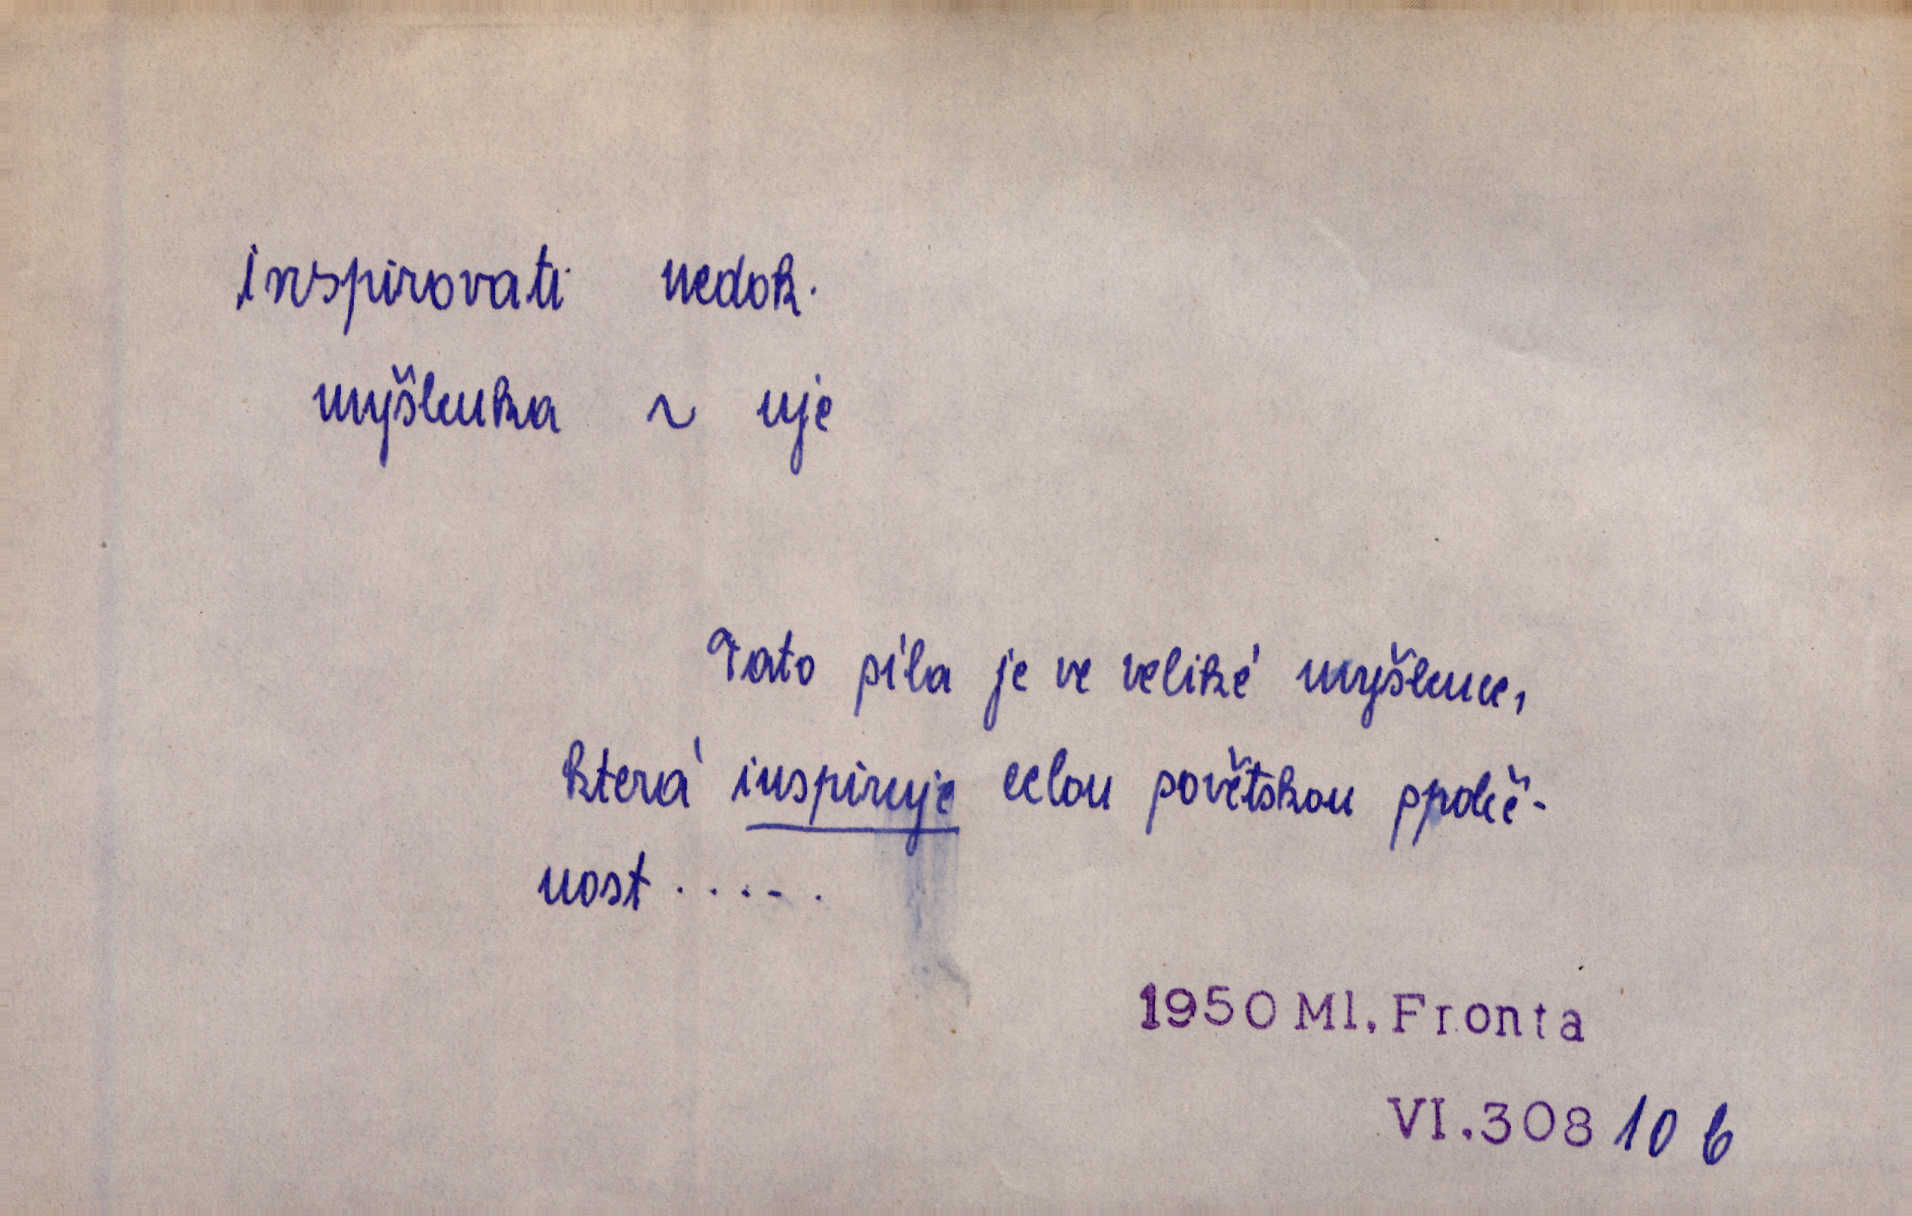 inspirovati nedok.
myšlenka ~ uje
Tato síla je ve veliké myšlence,
která inspiruje celou sovětskou společ-
nost .....
1950 Ml. Fronta
VI.308 10 b